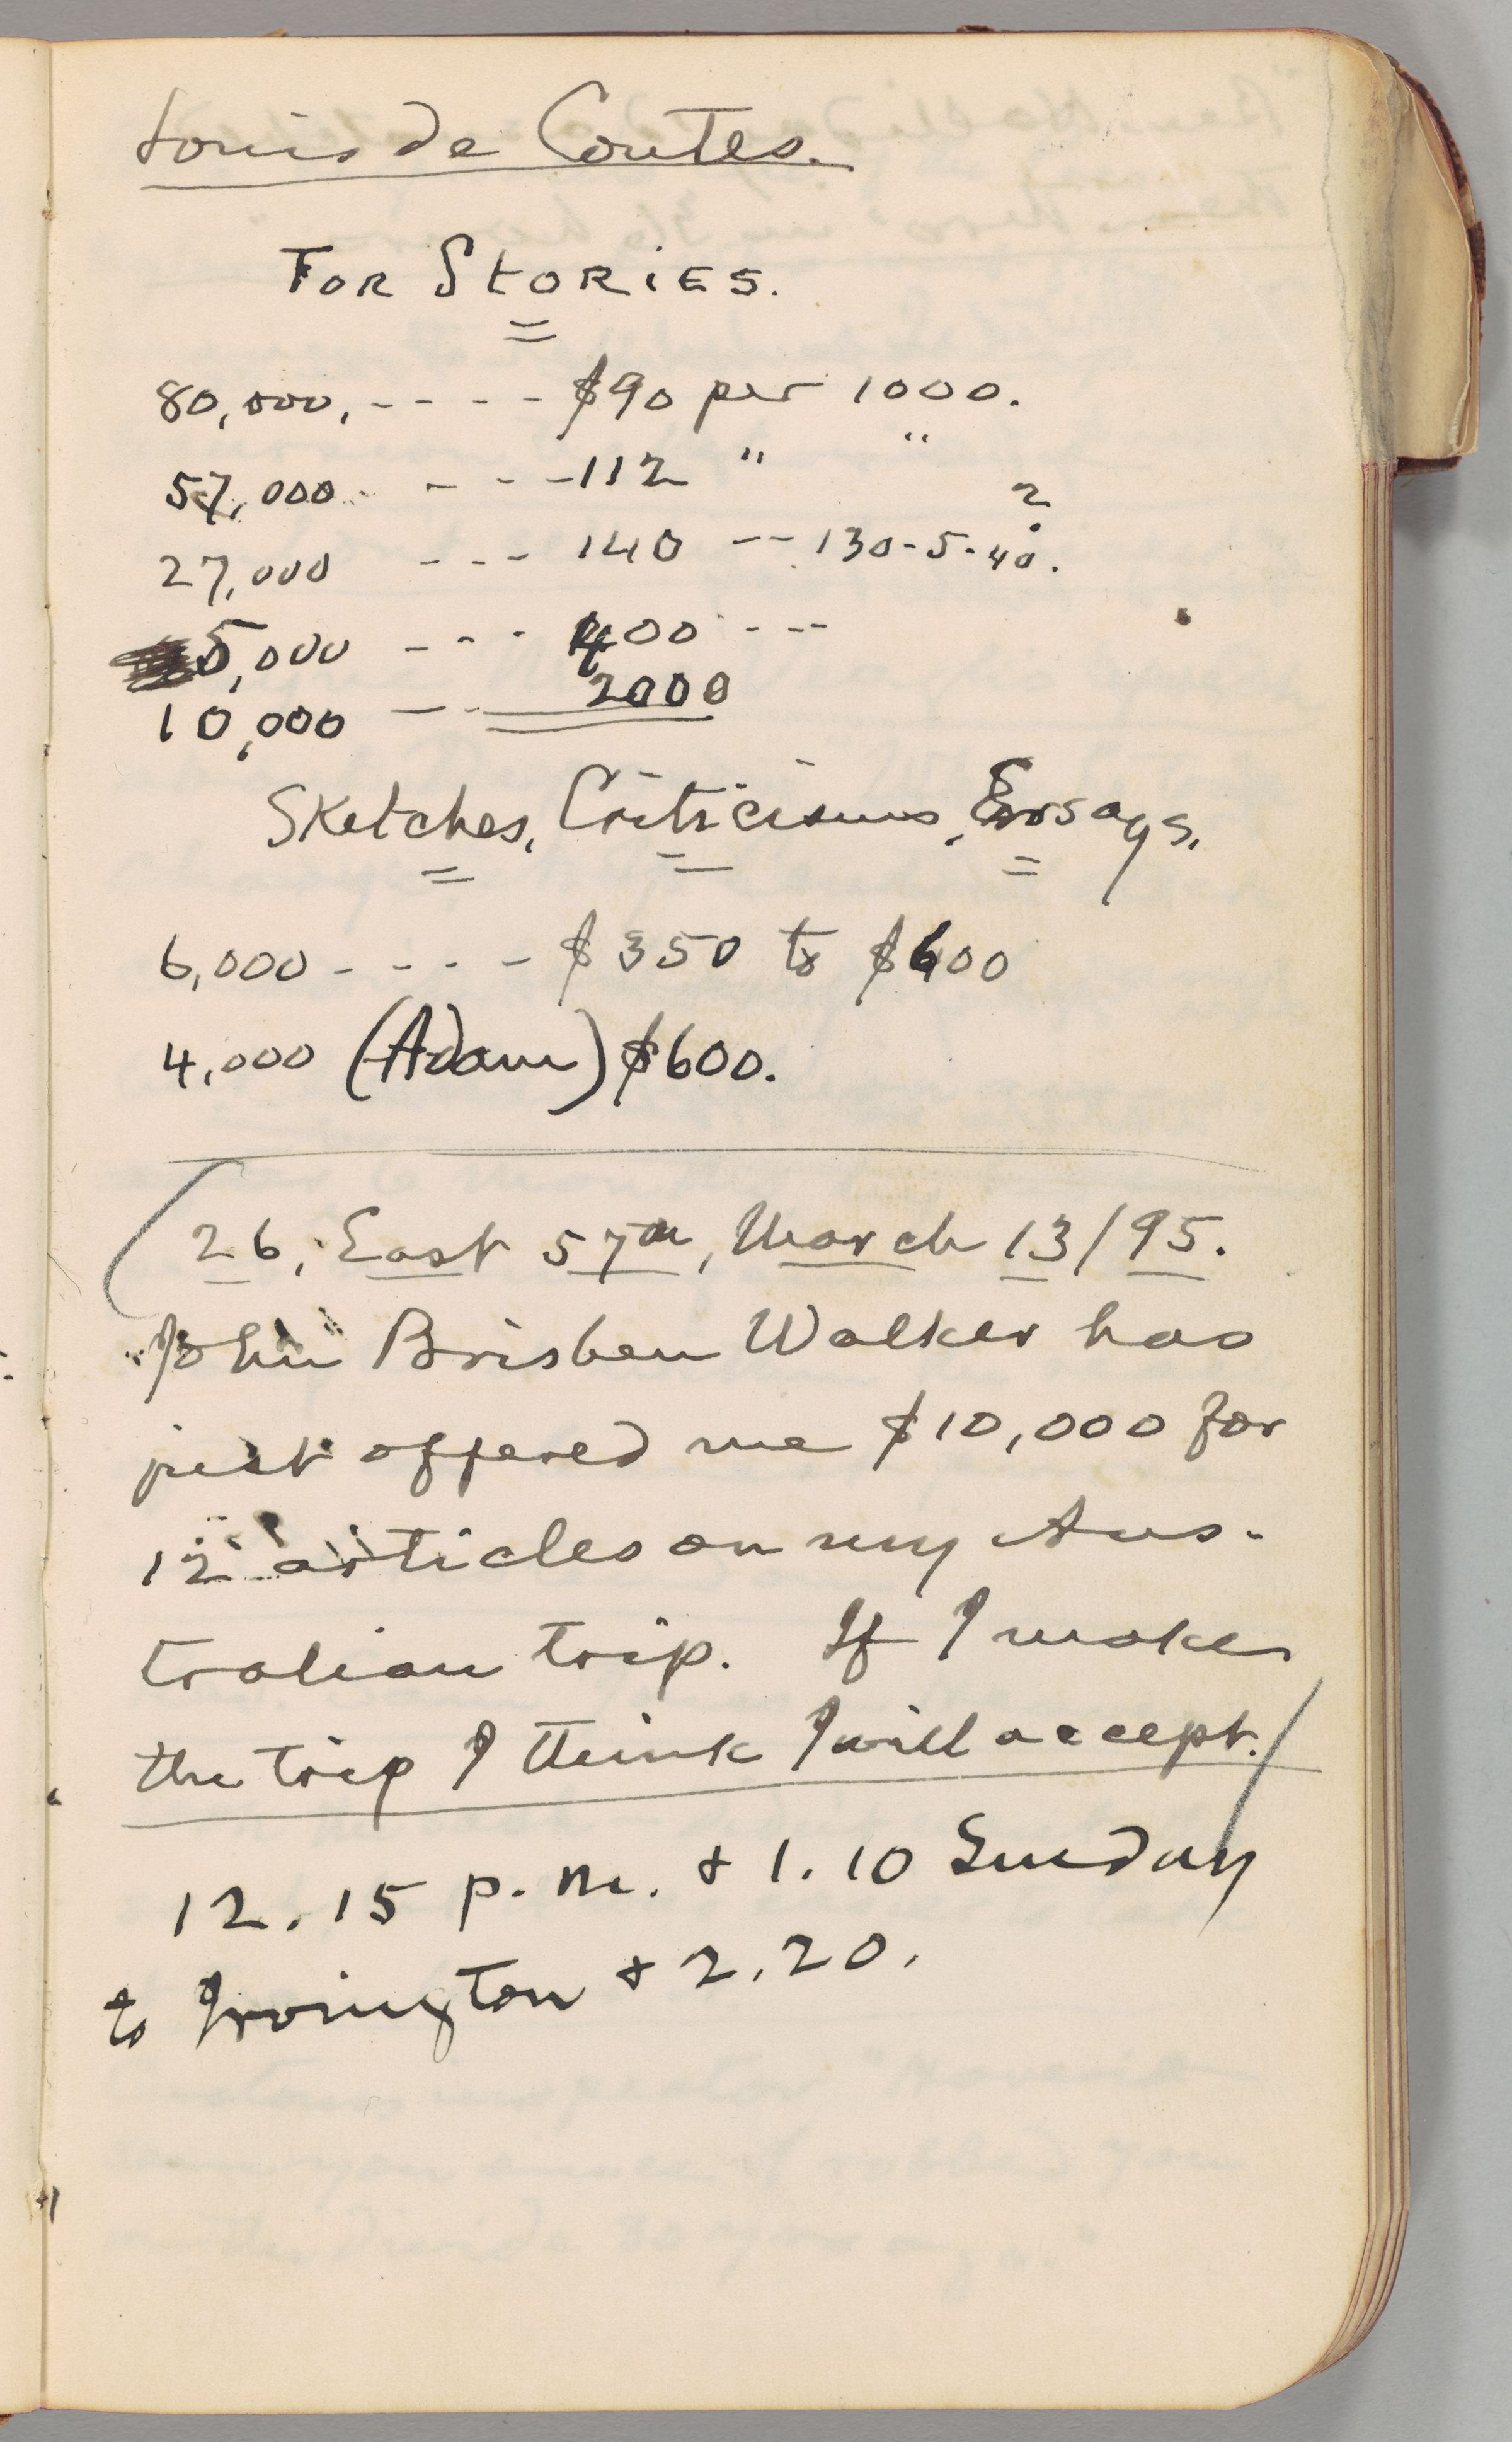 Louis de Contes.
FOR STORIES.
80,000, - - - - $90 per 1000.
57,000 - - - 112 " "
27,000 - - - 140 -- 130-5-40. 2
5,000 - - - 400 ---
10,000 - - 2000
Sketches, Criticisms, Essays.
6,000 - - - - $350 to $600
4,000 (Adam) $600.
26, East 57th, March 13/95.
John Brisben Walker has
just offered me $10,000 for
12 articles on my Aus-
tralian trip. If I make
the trip I think I will accept.
12.15 p.m. & 1.10 Sunday
to Irvington & 2.20.